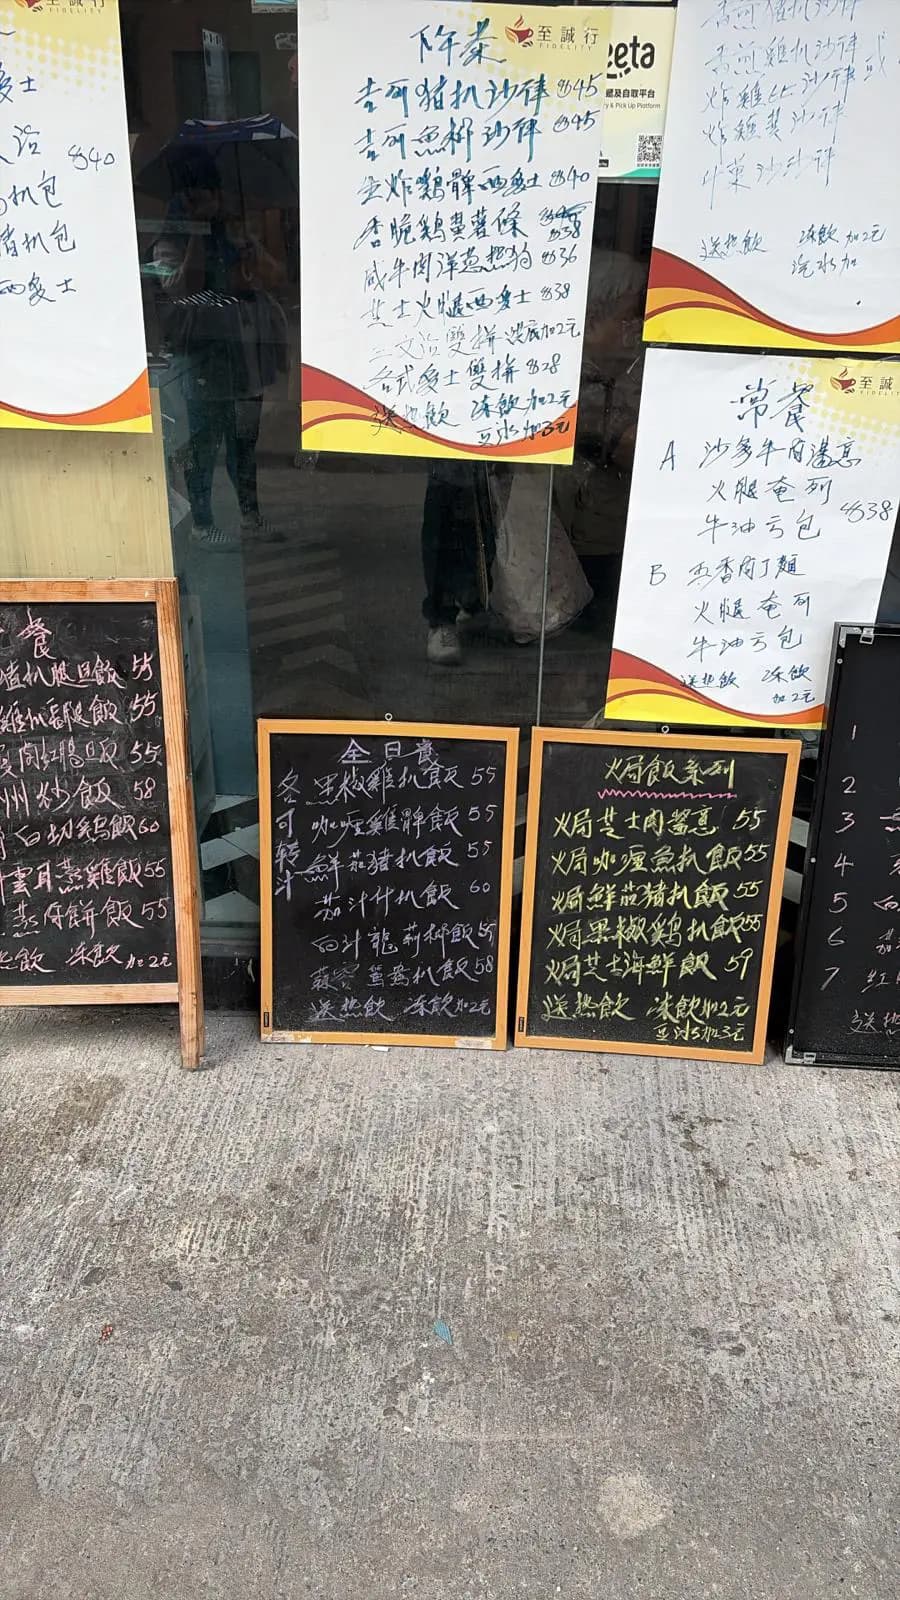 至誠行
FIDELITY
$40
扒包
豬扒包
西多士
至誠行
FIDELITY
下午茶
吉列豬扒沙律 $45
吉列魚柳沙律 $45
全炸鷄髀西多士 $40
香脆鷄翼薯條 $38
咸牛肉洋葱熱狗 $36
芝士火腿西多士 $38
三文治雙拼 烘底加2元
各式多士雙拼 $28
送热飲 冻飲加2元
豆冰加3元
eeta
及自取平台
& Pick Up Platform
香煎豬扒沙律
香煎雞扒沙律 或
沙律
炸雞翼沙律
什菓沙律
送热飲 冻飲加2元
汽水加
至誠
FIDELITY
常餐
A 沙爹牛肉湯意
火腿奄列
牛油亐包 $38
B 五香肉丁麵
火腿奄列
牛油亐包
送热飲 冻飲
加2元
餐
豬扒腿旦飯 55
雞扒香腿飯 55
55
州炒飯 58
白切鷄飯 60
雲耳蒸雞飯 55
蒸肉餅飯 55
热飲 冻飲加2元
全日餐
各可轉汁
黑椒雞扒飯 55
咖喱雞髀飯 55
鮮茄豬扒飯 55
茄汁什扒飯 60
白汁龍脷柳飯 55
蒜蓉鴛鴦扒飯 58
送热飲 冻飲加2元
焗飯系列
焗芝士肉醬意 55
焗咖喱魚扒飯 55
焗鮮茄豬扒飯 55
焗黑椒鷄扒飯 55
焗芝士海鮮飯 59
送热飲 冻飲加2元
豆冰加3元
1
2
3
4
5
6
7 紅
送热